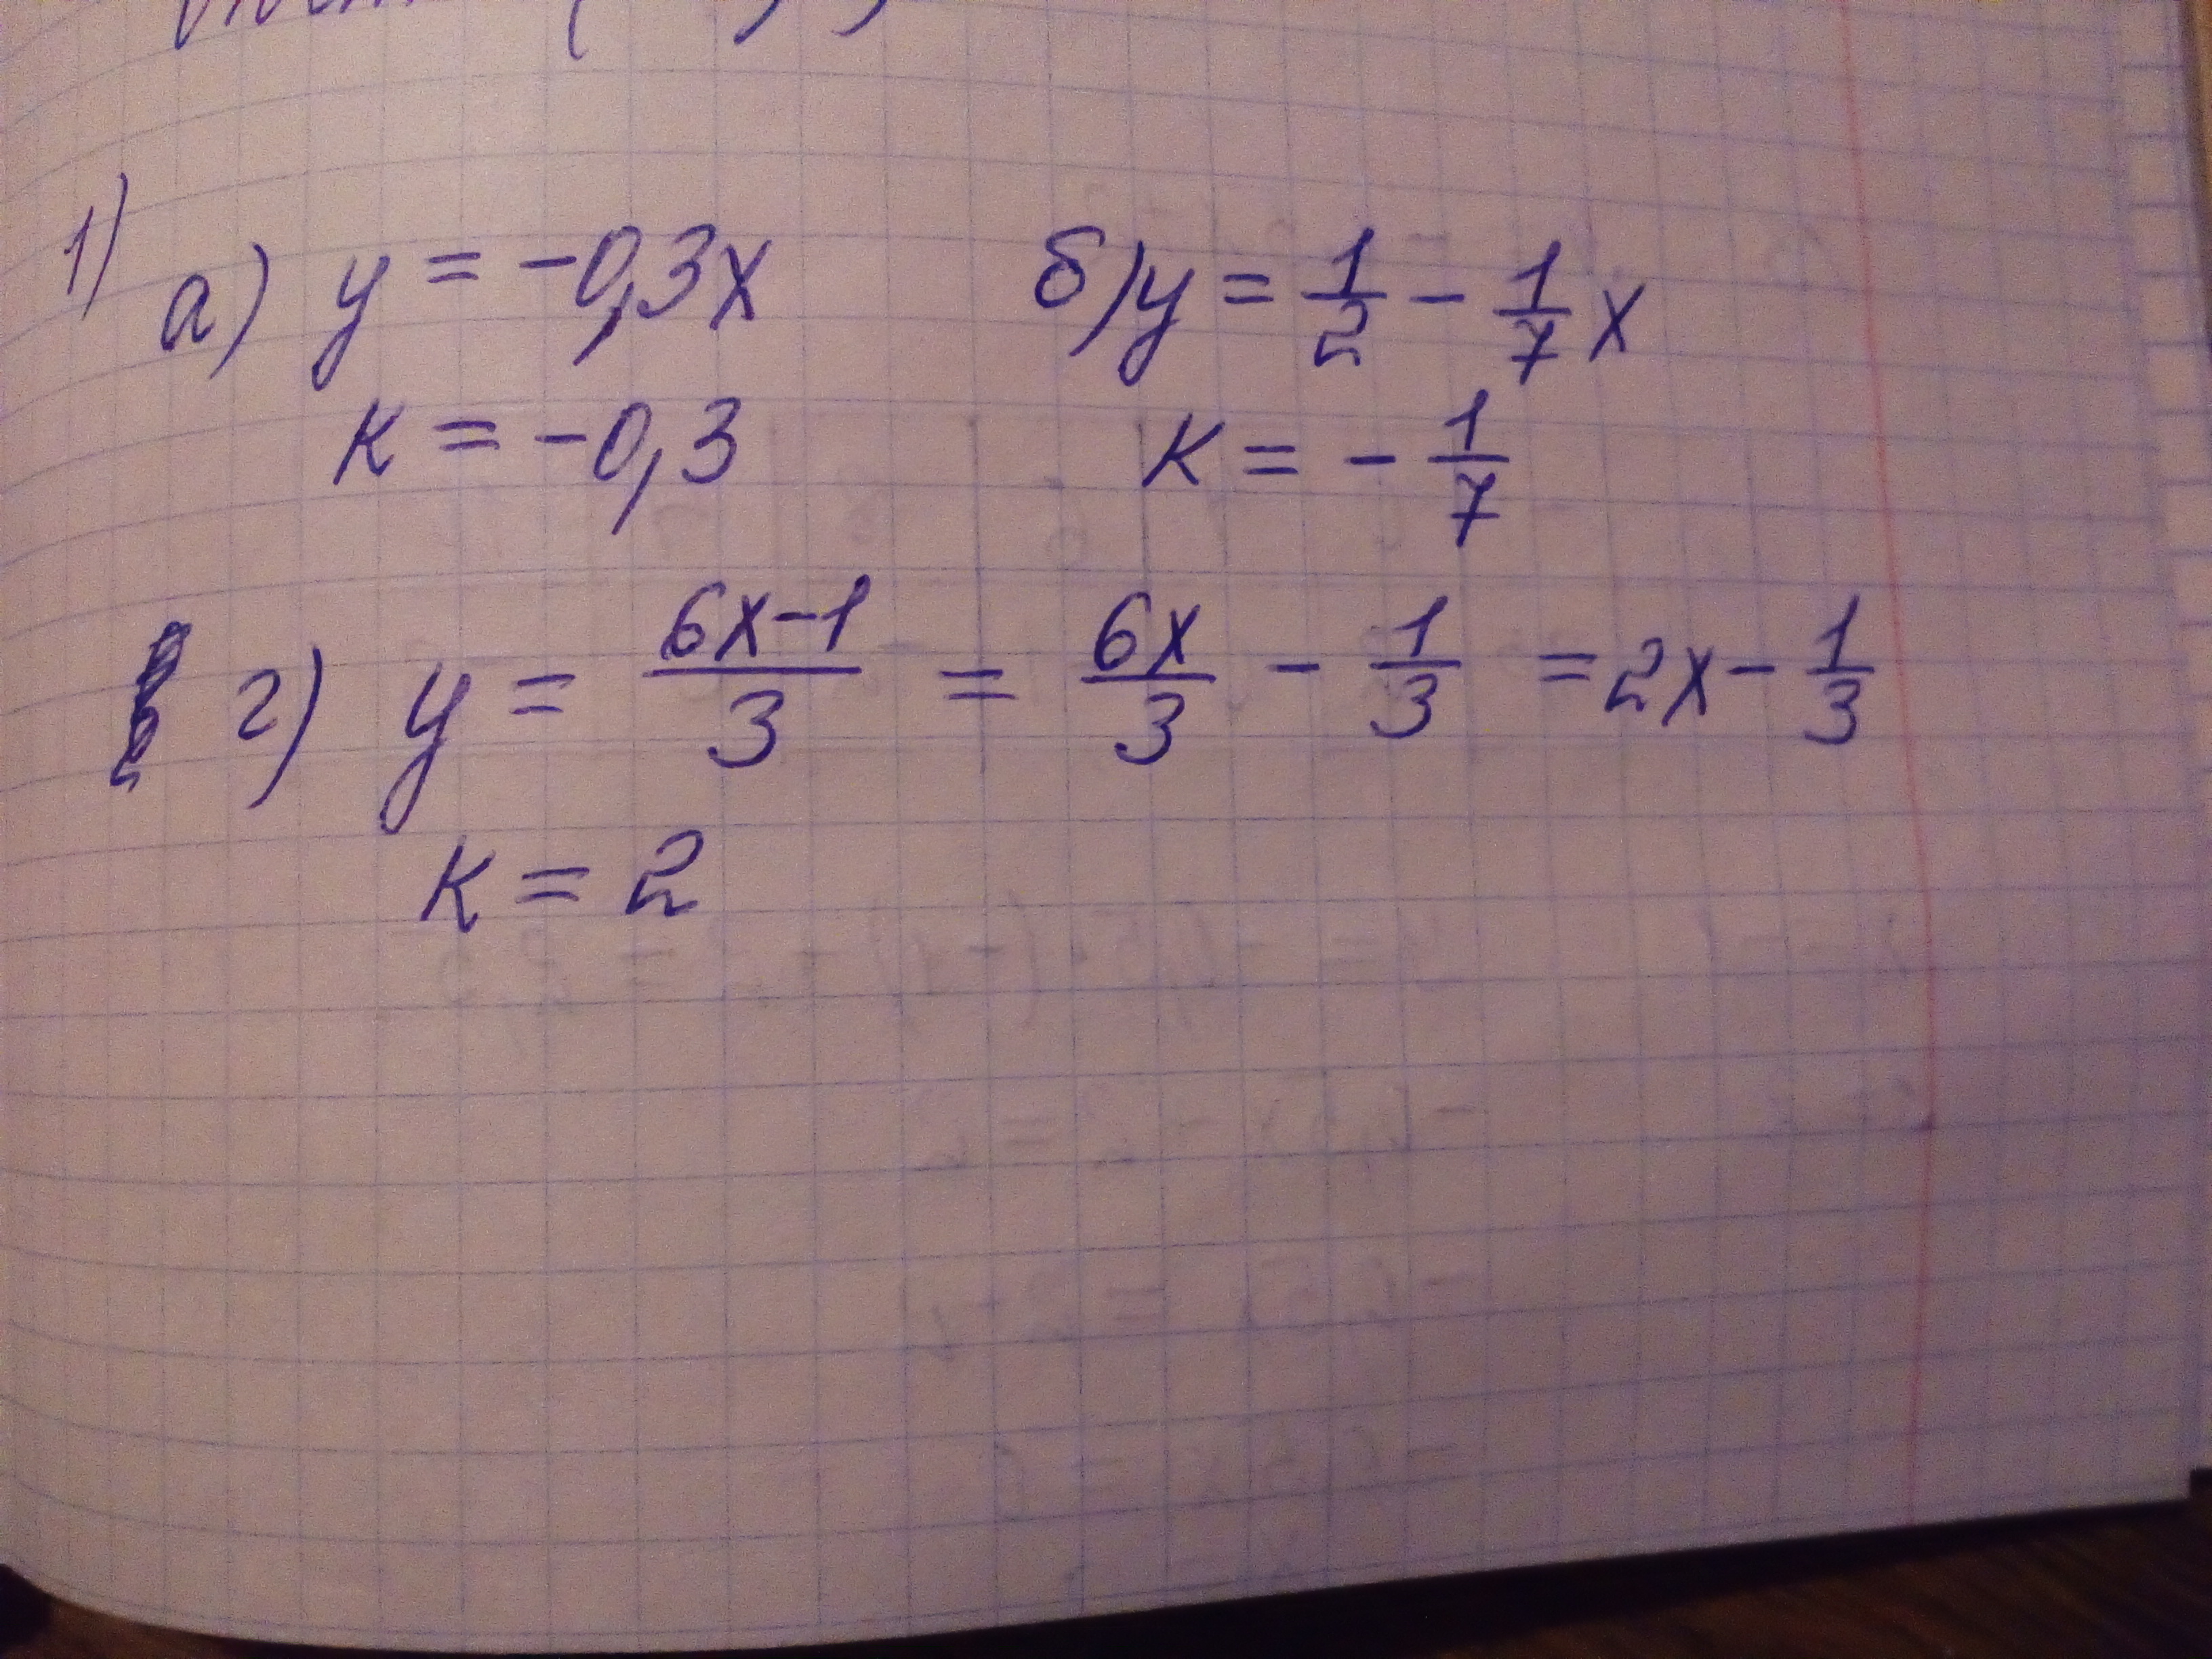 1)
а) y = -0,3x б) y = 1/2 - 1/7 x
к = -0,3 к = - 1/7
г) y = (6x-1)/3 = 6x/3 - 1/3 = 2x - 1/3
к = 2